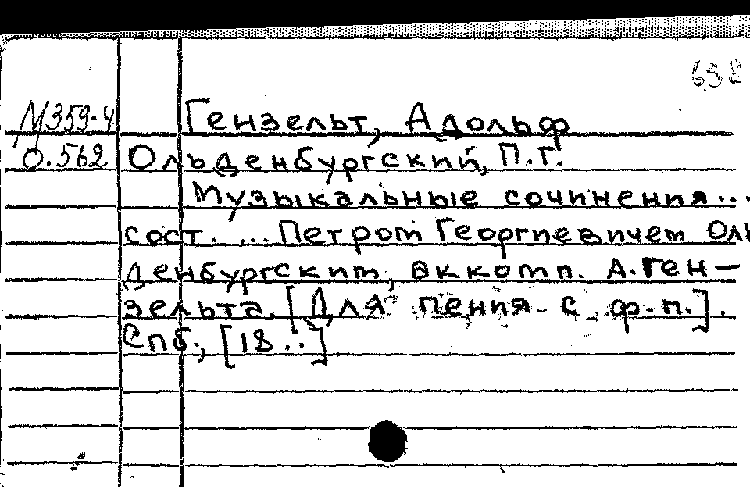 692
М359-4 Гензельт, Адольф
О.562 Ольденбургский, П.Г.
Музыкальные сочинения...
сост. ... Петром Георгиевичем Оль
денбургским, аккомп. А. Ген-
зельта. [Для пения с ф-п.].
Спб., [18..]